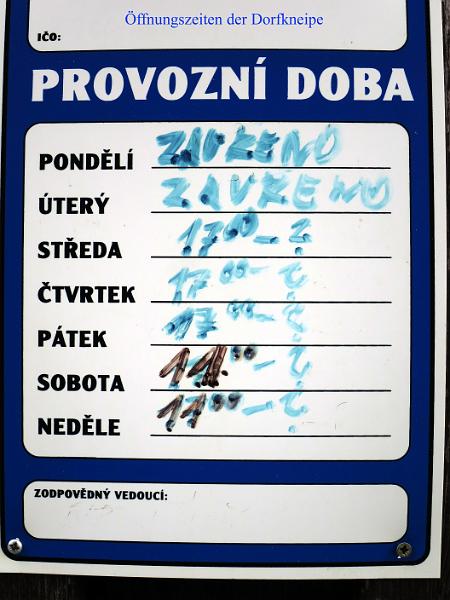 Öffnungszeiten der Dorfkneipe
IČO:
PROVOZNÍ DOBA
PONDĚLÍ ZAVŘENO
ÚTERÝ ZAVŘENO
STŘEDA 17⁰⁰ - ?
ČTVRTEK 17⁰⁰ - ?
PÁTEK 17⁰⁰ - ?
SOBOTA 11⁰⁰ - ?
NEDĚLE 11⁰⁰ - ?
ZODPOVĚDNÝ VEDOUCÍ: